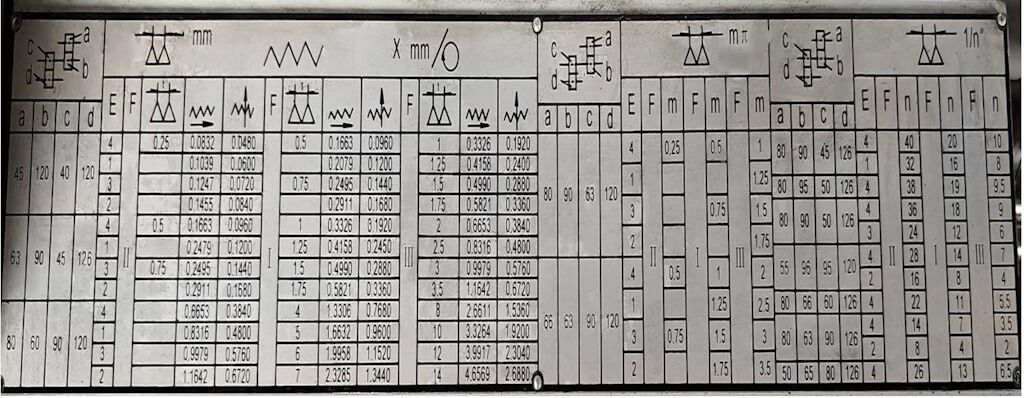 c a d b mm X mm/ c a d b m π c a d b 1/n"
a b c d E F F F a b c d E F m F m F m a b c d E F n F n F n
45 120 40 120
63 90 45 126
80 60 90 120
II I III
4 0.25 0.0832 0.0480 0.5 0.1663 0.0960 1 0.3326 0.1920
1 0.1039 0.0600 0.2079 0.1200 1.25 0.4158 0.2400
3 0.1247 0.0720 0.75 0.2495 0.1440 1.5 0.4990 0.2880
2 0.1455 0.0840 0.2911 0.1680 1.75 0.5821 0.3360
4 0.5 0.1663 0.0960 1 0.3326 0.1920 2 0.6653 0.3840
1 0.2479 0.1200 1.25 0.4158 0.2450 2.5 0.8316 0.4800
3 0.75 0.2495 0.1440 1.5 0.4990 0.2880 3 0.9979 0.5760
2 0.2911 0.1680 1.75 0.5821 0.3360 3.5 1.1642 0.6720
4 0.6653 0.3840 4 1.3306 0.7680 8 2.6611 1.5360
1 0.8316 0.4800 5 1.6632 0.9600 10 3.3264 1.9200
3 0.9979 0.5760 6 1.9958 1.1520 12 3.9917 2.3040
2 1.1642 0.6720 7 2.3285 1.3440 14 4.6569 2.6880
80 90 63 120
66 63 90 120
II I III
4 0,25 0.5 1
1 1.25
3 0.75 1.5
2 1.75
4 0.5 1 2
1 1.25 2,5
3 0.75 1.5 3
2 1.75 3.5
80 90 45 126
80 95 50 126
80 90 50 126
55 96 95 120
80 66 60 126
80 63 90 126
50 65 80 126
II I III
4 40 20 10
1 32 16 8
4 38 19 9.5
4 36 18 9
3 24 12 6
4 28 14 7
2 16 8 4
4 22 11 5.5
4 14 7 3.5
2 8 4 2
4 26 13 6.5